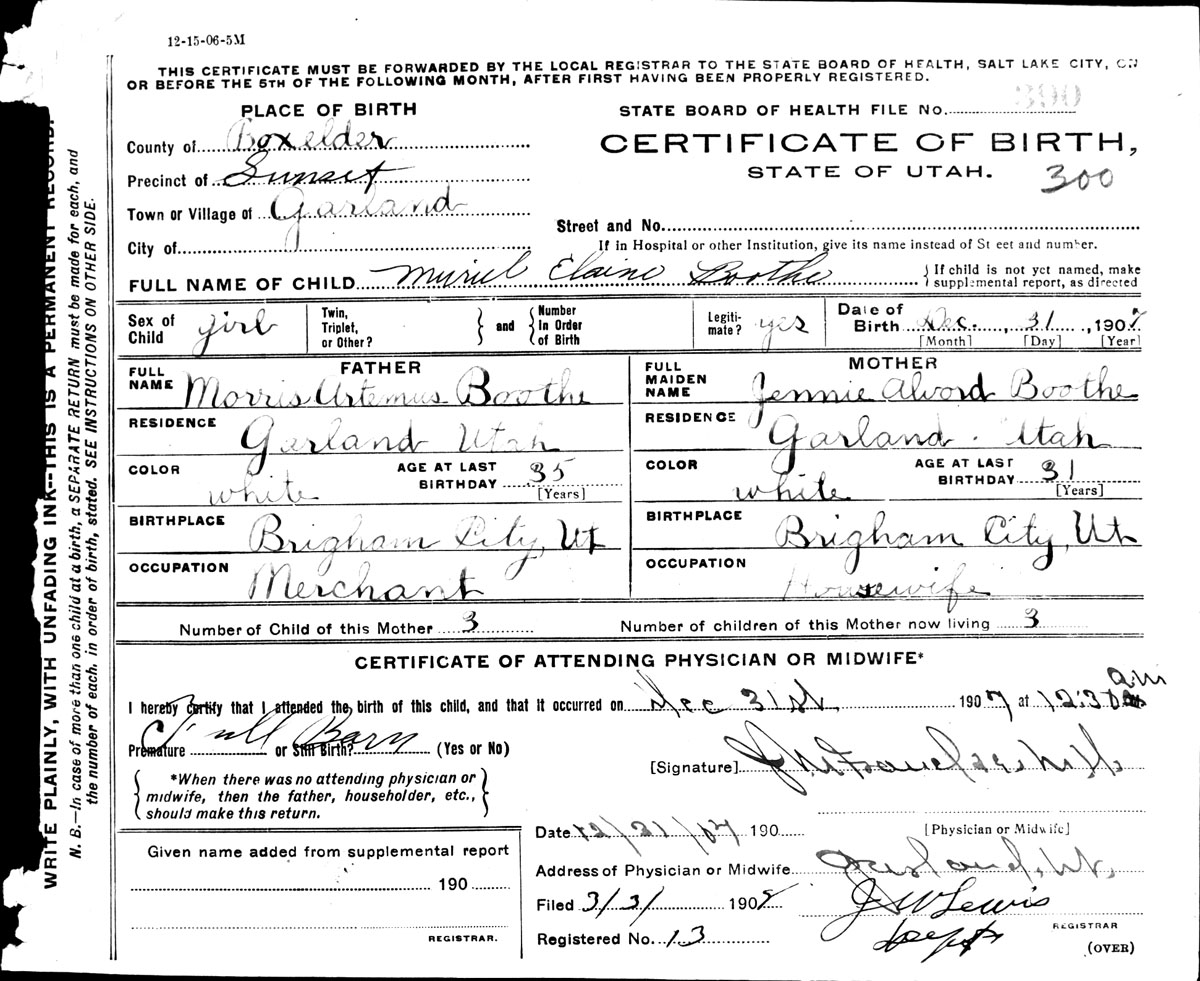 12-15-06-5M
THIS CERTIFICATE MUST BE FORWARDED BY THE LOCAL REGISTRAR TO THE STATE BOARD OF HEALTH, SALT LAKE CITY, ON
OR BEFORE THE 5TH OF THE FOLLOWING MONTH, AFTER FIRST HAVING BEEN PROPERLY REGISTERED.
PLACE OF BIRTH
STATE BOARD OF HEALTH FILE No. 300
County of Boxelder
CERTIFICATE OF BIRTH,
Precinct of Sunset
STATE OF UTAH. 300
Town or Village of Garland
Street and No.
City of
If in Hospital or other Institution, give its name instead of St eet and number.
FULL NAME OF CHILD Muriel Elaine Boothe
If child is not yet named, make
supplemental report, as directed
Sex of Child girl
Twin, Triplet, or Other?
and
Number In Order of Birth
Legiti-mate? yes
Date of Birth Dec. 31, 1907
[Month] [Day] [Year]
FATHER
FULL NAME Morris Artemus Boothe
RESIDENCE Garland Utah
COLOR white
AGE AT LAST BIRTHDAY 35
[Years]
BIRTHPLACE Brigham City, Ut
OCCUPATION Merchant
MOTHER
FULL MAIDEN NAME Jennie Alvord Boothe
RESIDENCE Garland. Utah
COLOR white
AGE AT LAST BIRTHDAY 31
[Years]
BIRTHPLACE Brigham City, Ut
OCCUPATION Housewife
Number of Child of this Mother 3
Number of children of this Mother now living 3
CERTIFICATE OF ATTENDING PHYSICIAN OR MIDWIFE*
I hereby certify that I attended the birth of this child, and that it occurred on Dec 31st, 1907 at 12:30 am
Premature or Still Birth? (Yes or No)
[Signature]
*When there was no attending physician or
midwife, then the father, householder, etc.,
should make this return.
[Physician or Midwife]
Date 190
Given name added from supplemental report
Address of Physician or Midwife Garland, Ut.
190
Filed 3/3/ 1908
J W Lewis
REGISTRAR
REGISTRAR.
Registered No. 13
Dept
(OVER)
WRITE PLAINLY, WITH UNFADING INK--THIS IS A PERMANENT RECORD.
N. B.—In case of more than one child at a birth, a SEPARATE RETURN must be made for each, and
the number of each, in order of birth, stated. SEE INSTRUCTIONS ON OTHER SIDE.